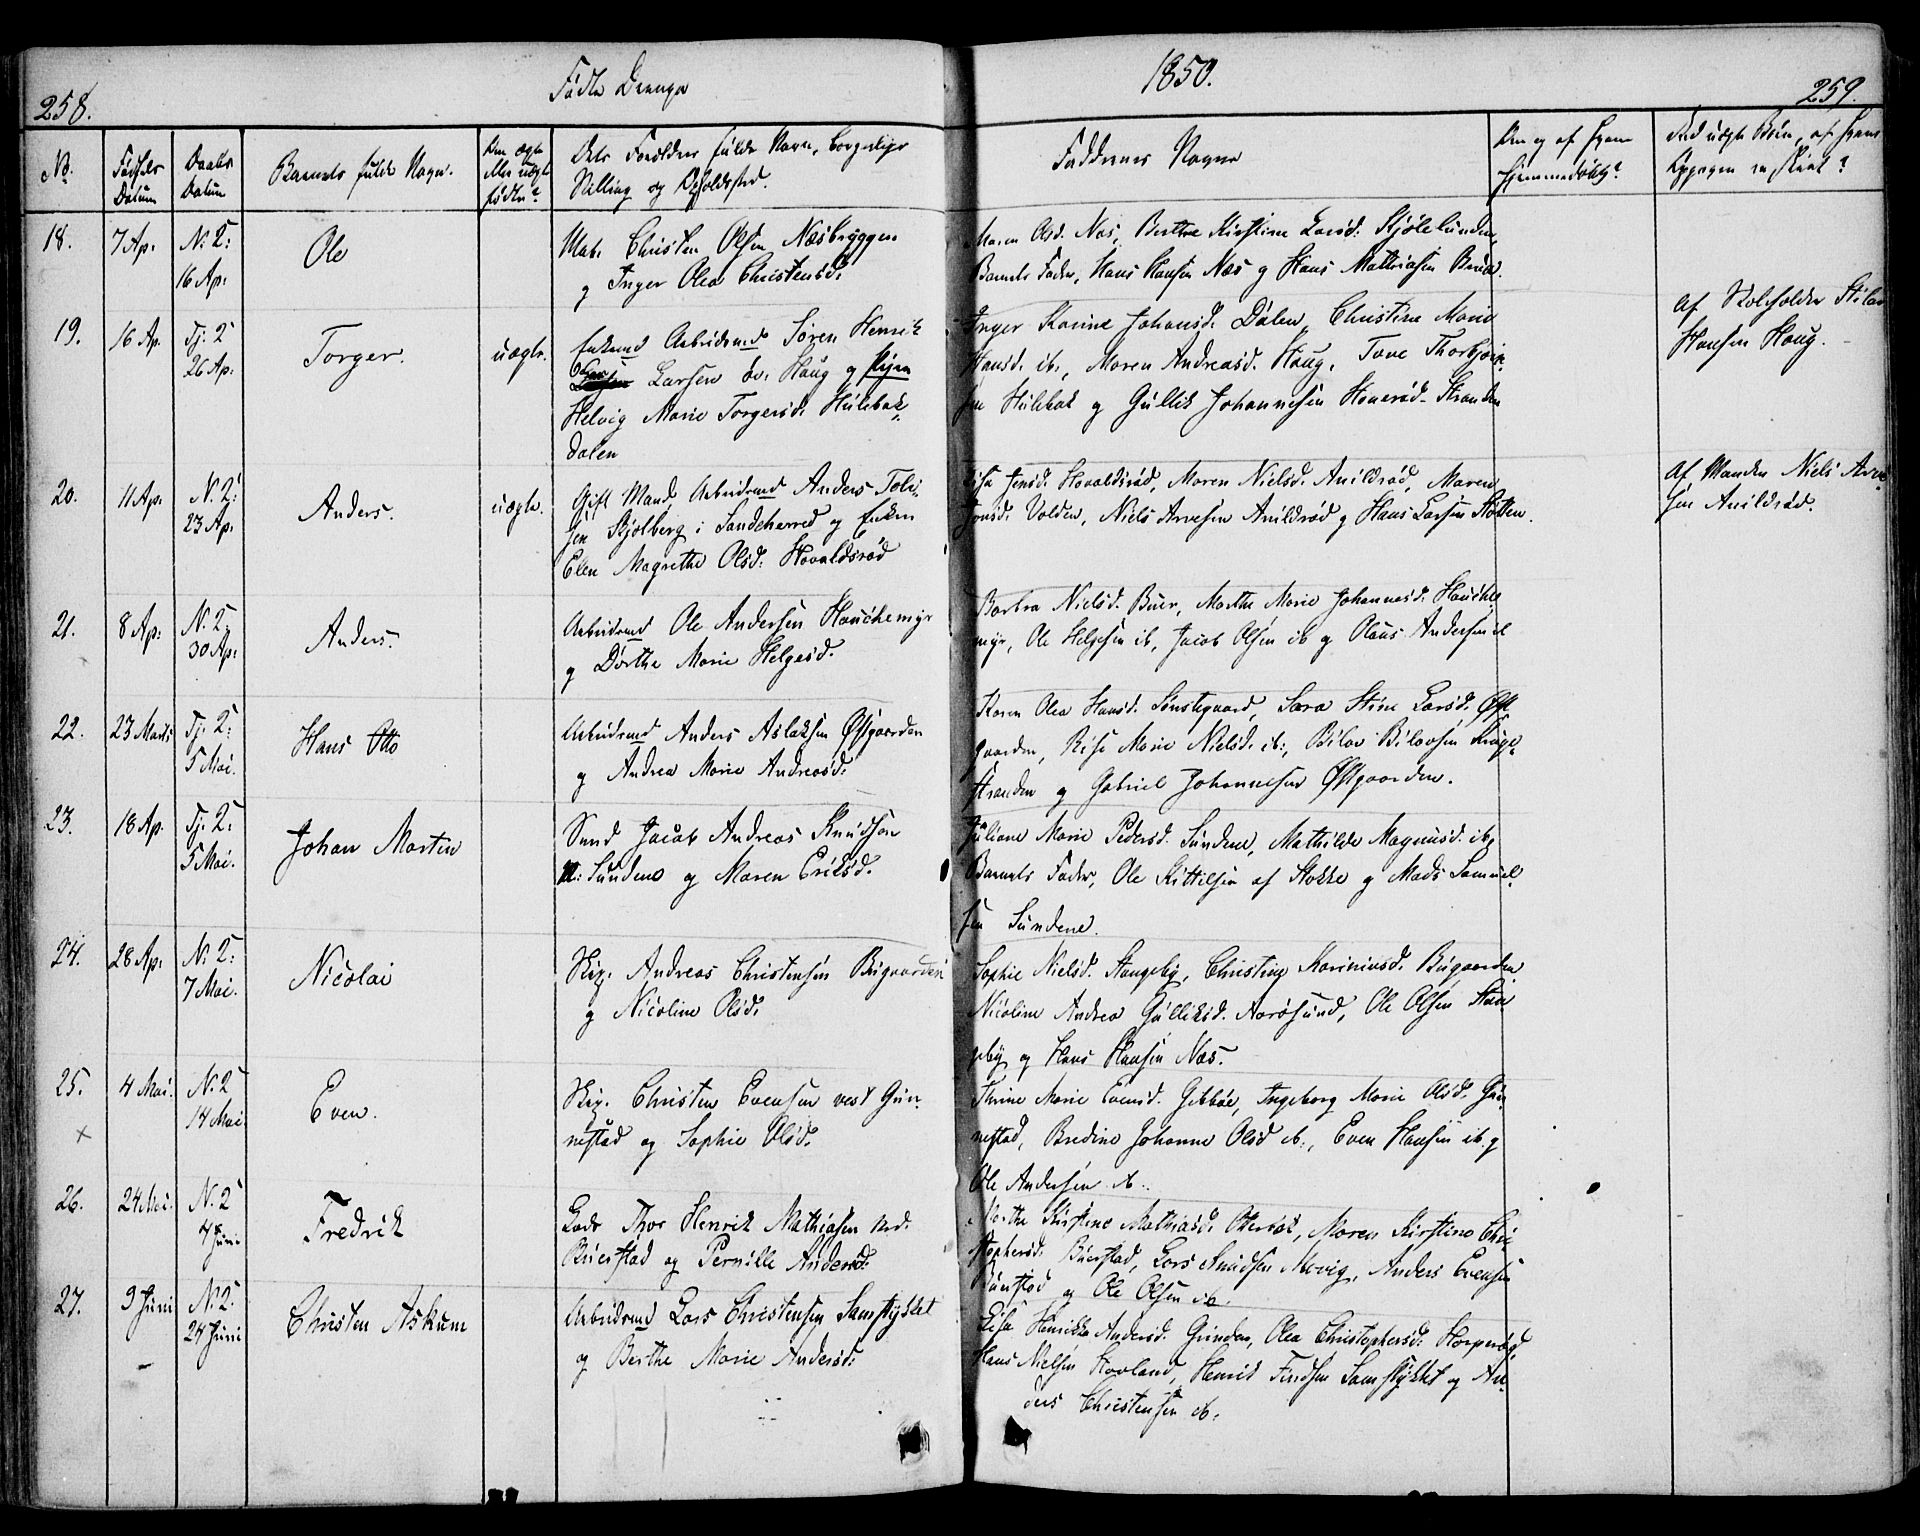 258.
Fødte Drenge
1850.
259.
No.
Fødsels Datum
Daabs Datum
Barnets fulde Navn.
Om ægte eller uægte fødte?
Dets Forældres fulde Navn, borgerlige Stilling og Opholdssted.
Faddernes Navne
Om og af hvem hjemmedøbt?
Ved uægte Børn, af hvem Opgaven er skeet?
18.
7 Ap:
N: 2:
16 Ap:
Ole
Mat. Christen Olsen Næsbryggen
og Inger Olea Christensd:
Maren Olsd. Næs, Berthe Kirstine Larsd: Skjølelunden,
Barnets Fader, Hans Hansen Næs og Hans Mathiasen
19.
16 Ap.
Tj: 2
26 Ap:
Torger.
uægte.
Enkemd Arbeidsmd Søren Henrik
Larsen Haug og Pigen
Helvig Marie Torgersd. Hulebak-
dalen
Inger Karine Johansd. Dalen, Christine Marie
Hansd. ib., Maren Andreasd. Haug, Tove Thorbjørn-
sen Hulebak og Gullik Johannesen Stranden
af
Hansen Haug.
20.
11 Ap.
N. 2:
23 Ap:
Anders.
uægte.
Gift Mand Arbeidsmd Anders
sen Skjølberg i Sandeherred og Enken
Elen Magrethe Olsd: Havaldsrød
Jensd. Havaldsrød, Maren Nielsd. Arildsrød, Maren
Jensd. Volden, Niels Arvesen Arildsrød og Hans Larsen
af Manden Niels Arve-
sen Arildsrød.
21.
8 Ap:
N: 2:
30 Ap:
Anders.
Arbeidsmd Ole Andersen Hauchemyr
og Dorthe Marie Helgesd.
Barbra Nielsd. Buer, Marthe Marie Johannesd. Hauche-
myr, Ole Helgesen ib, Jacob Olsen ib og Olaus Andersen ib
22.
23 Marts
Tj: 2:
5 Mai.
Hans Otto
Arbeidsmd Anders Aslaksen Østgaarden
og Andrea Marie Andreasd:
Karen Olea Hansd. Sønstegaard, Sara Stine Larsd. Øst-
gaarden, Marie Nielsd. ib:,
Stranden og Gabriel Johannesen Østgaarden.
23.
18 Ap.
Tj: 2:
5 Mai.
Johan Martin
Smd Jacob Andreas Knudsen
N: Sundene og Maren Eriksd.
Juliane Marie Pedersd. Sundene, Mathilde Magnusd. ib,
Barnets Fader, Ole Kittilsen af Stokke og Mads Samuel-
sen Sundene.
24.
28 Ap:
N: 2:
7 Mai.
Nicolai
Skip. Andreas Christensen Bugaarden
og Nicoline Olsd.
Sophie Nielsd. Stangeby, Christine Karinusd. Bugaarden
Nicoline Andrea Gulliksd. Aarøsund, Ole Olsen Stan-
geby og Hans Hansen Næs.
25.
4 Mai.
N: 2
14 Mai
Even.
Skip. Christen Evensen vest Gun-
nestad og Sophie Olsd.
Thrine Marie Evensd. Gibbøe, Ingeborg Marie Olsd. Gun-
nestad, Bredine Johanne Olsd ib:, Even Hansen ib. og
Ole Andersen ib.
26.
24 Mai.
N. 2
4 Juni
Fredrik
Lods Thor Henrik Mathiasen ned.
Buerstad og Pernille Andersd:
Marthe Kirstine Mathiasd. Oterbæk, Maren Kirstine Chri-
stophersd. Buerstad, Lars Knudsen Movig, Anders Evensen
Buerstad og Ole Olsen ib.
27.
9 Juni
N: 2.
24 Juni
Christen Askum
Arbeidsmd Lars Christensen Samstykket
og Berthe Marie Andersd:
Lisa Henrikke Andersd. Grinden, Olea Christophersd: Horperød,
Hans Nielsen Hovland, Henrik Findsen Samstykket og An-
ders Christensen ib.